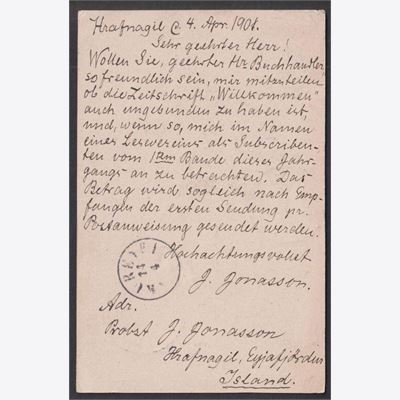 Hrafnagil @ 4. Apr. 1901.
Sehr geehrter Herr!
Wollen Sie, geehrter Hr. Buchhandler,
so freundlich sein, mir mitzuteilen
ob die Zeitschrift „Willkommen"
auch ungebunden zu haben ist,
und, wenn so, mich im Namen
eines Lesvereins als Subscriben-
ten vom 1sten Bande dieses Jahr-
gangs an zu betrachten. Das
Betrag wird sogleich nach Emp-
fangen der ersten Sendung pr.
Postanweisung gesendet werden.
Hochachtungsvollst
J. Jonasson.
14
4
Adr.
Probst J. Jonasson
Hrafnagil, Eyjafjörður
Island.